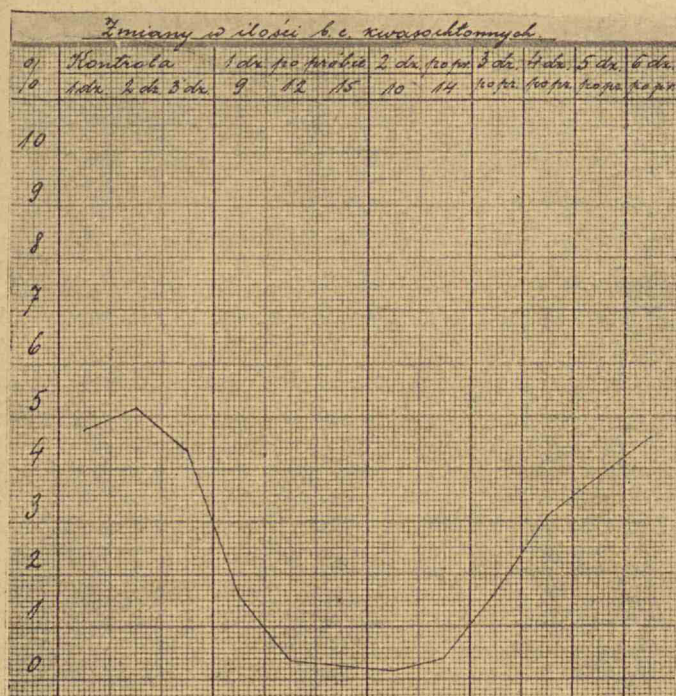 Zmiany w ilości b.c. kwasochłonnych.
% Kontrola 1 dz. po próbie 2 dz. po pr. 3 dz. 4 dz. 5 dz. 6 dz.
1 dz. 2 dz. 3 dz. 9 12 15 10 14 po pr. po pr. po pr. po pr.
10
9
8
7
6
5
4
3
2
1
0